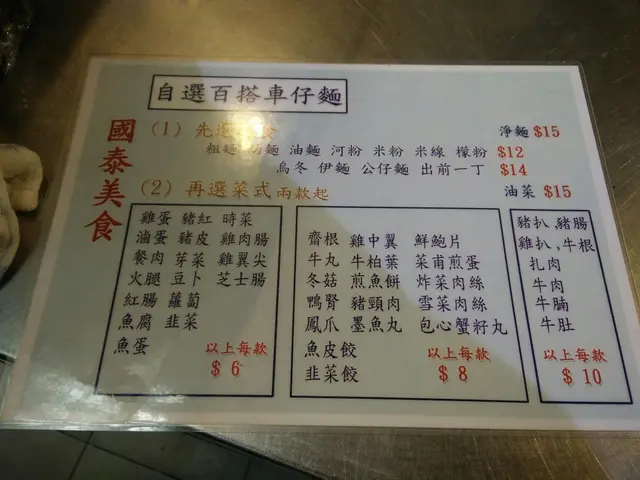 自選百搭車仔麵
國泰美食
(1) 先選 食 淨麵 $15
粗麵 幼麵 油麵 河粉 米粉 米線 檬粉 $12
烏冬 伊麵 公仔麵 出前一丁 $14
(2) 再選菜式兩款起 油菜 $15
雞蛋 豬紅 時菜
滷蛋 豬皮 雞肉腸
餐肉 芽菜 雞翼尖
火腿 豆卜 芝士腸
紅腸 蘿蔔
魚腐 韭菜
魚蛋
以上每款
$ 6
齋根 雞中翼 鮮鮑片
牛丸 牛柏葉 菜甫煎蛋
冬菇 煎魚餅 炸菜肉絲
鴨腎 豬頸肉 雪菜肉絲
鳳爪 墨魚丸 包心蟹籽丸
魚皮餃
韭菜餃
以上每款
$ 8
豬扒,豬腸
雞扒,牛根
扎肉
牛肉
牛腩
牛肚
以上每款
$ 10